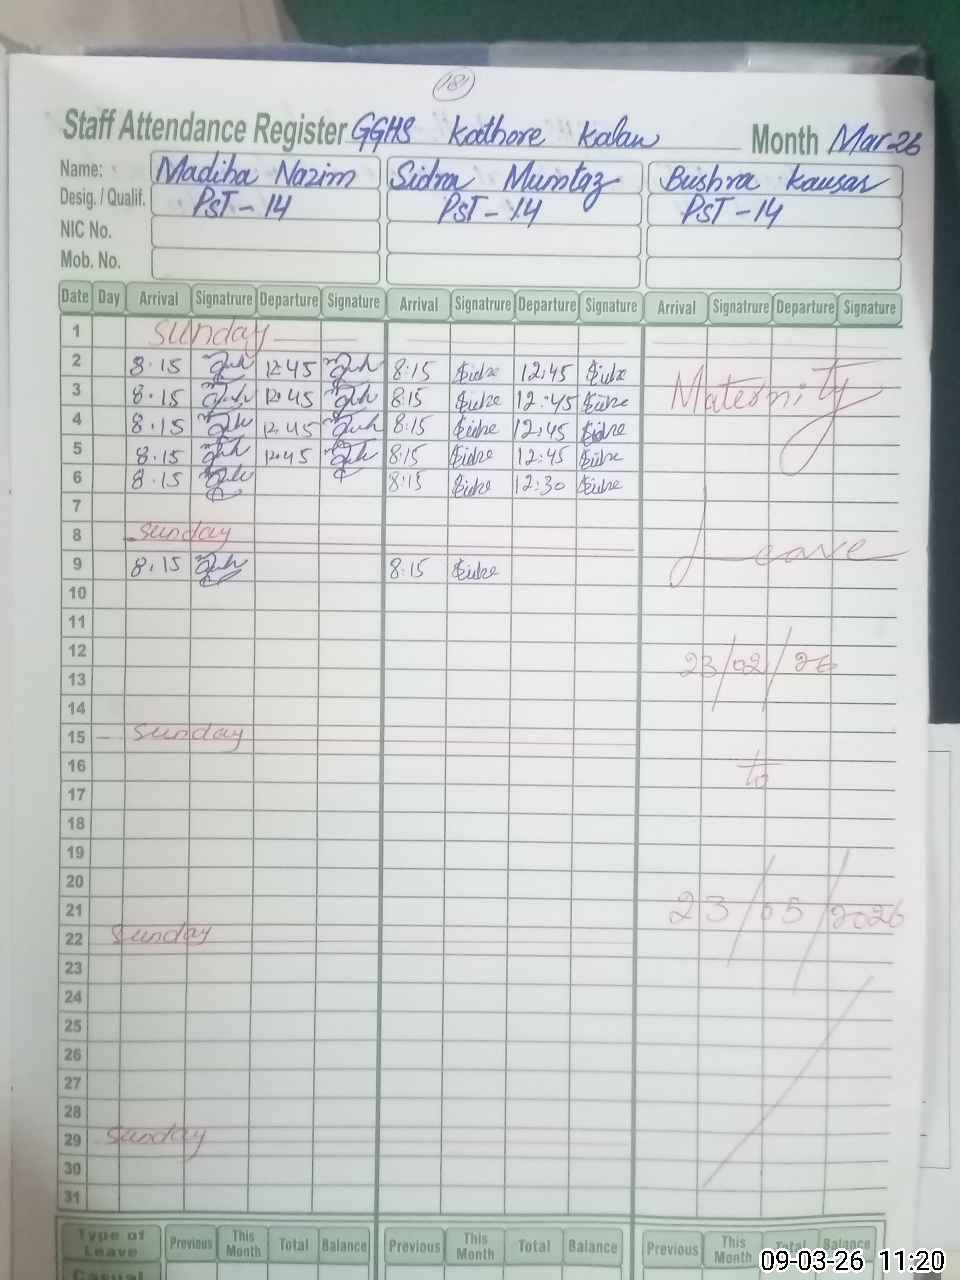 181
Staff Attendance Register GGHS Kathore Kalan Month Mar-26
Name: Madiha Nazim Sidra Mumtaz Bushra Kausar
Desig. / Qualif. PST-14 PST-14 PST-14
NIC No.
Mob. No.
Date Day Arrival Signatrure Departure Signature Arrival Signatrure Departure Signature Arrival Signatrure Departure Signature
1 Sunday
2 8.15 12:45 8:15 12:45
3 8.15 12:45 8:15 12:45
Maternity
4 8.15 12:45 8:15 12:45
5 8.15 12:45 8:15 12:45
6 8.15 8:15 12:30
7
8 Sunday
Leave
9 8.15 8:15
10
11
12
23/02/26
13
14
15 Sunday
16
to
17
18
19
20
21
23/05/2026
22 Sunday
23
24
25
26
27
28
29 Sunday
30
31
Type of Leave Previous This Month Total Balance Previous This Month Total Balance Previous This Month Total Balance
Casual
09-03-26 11:20